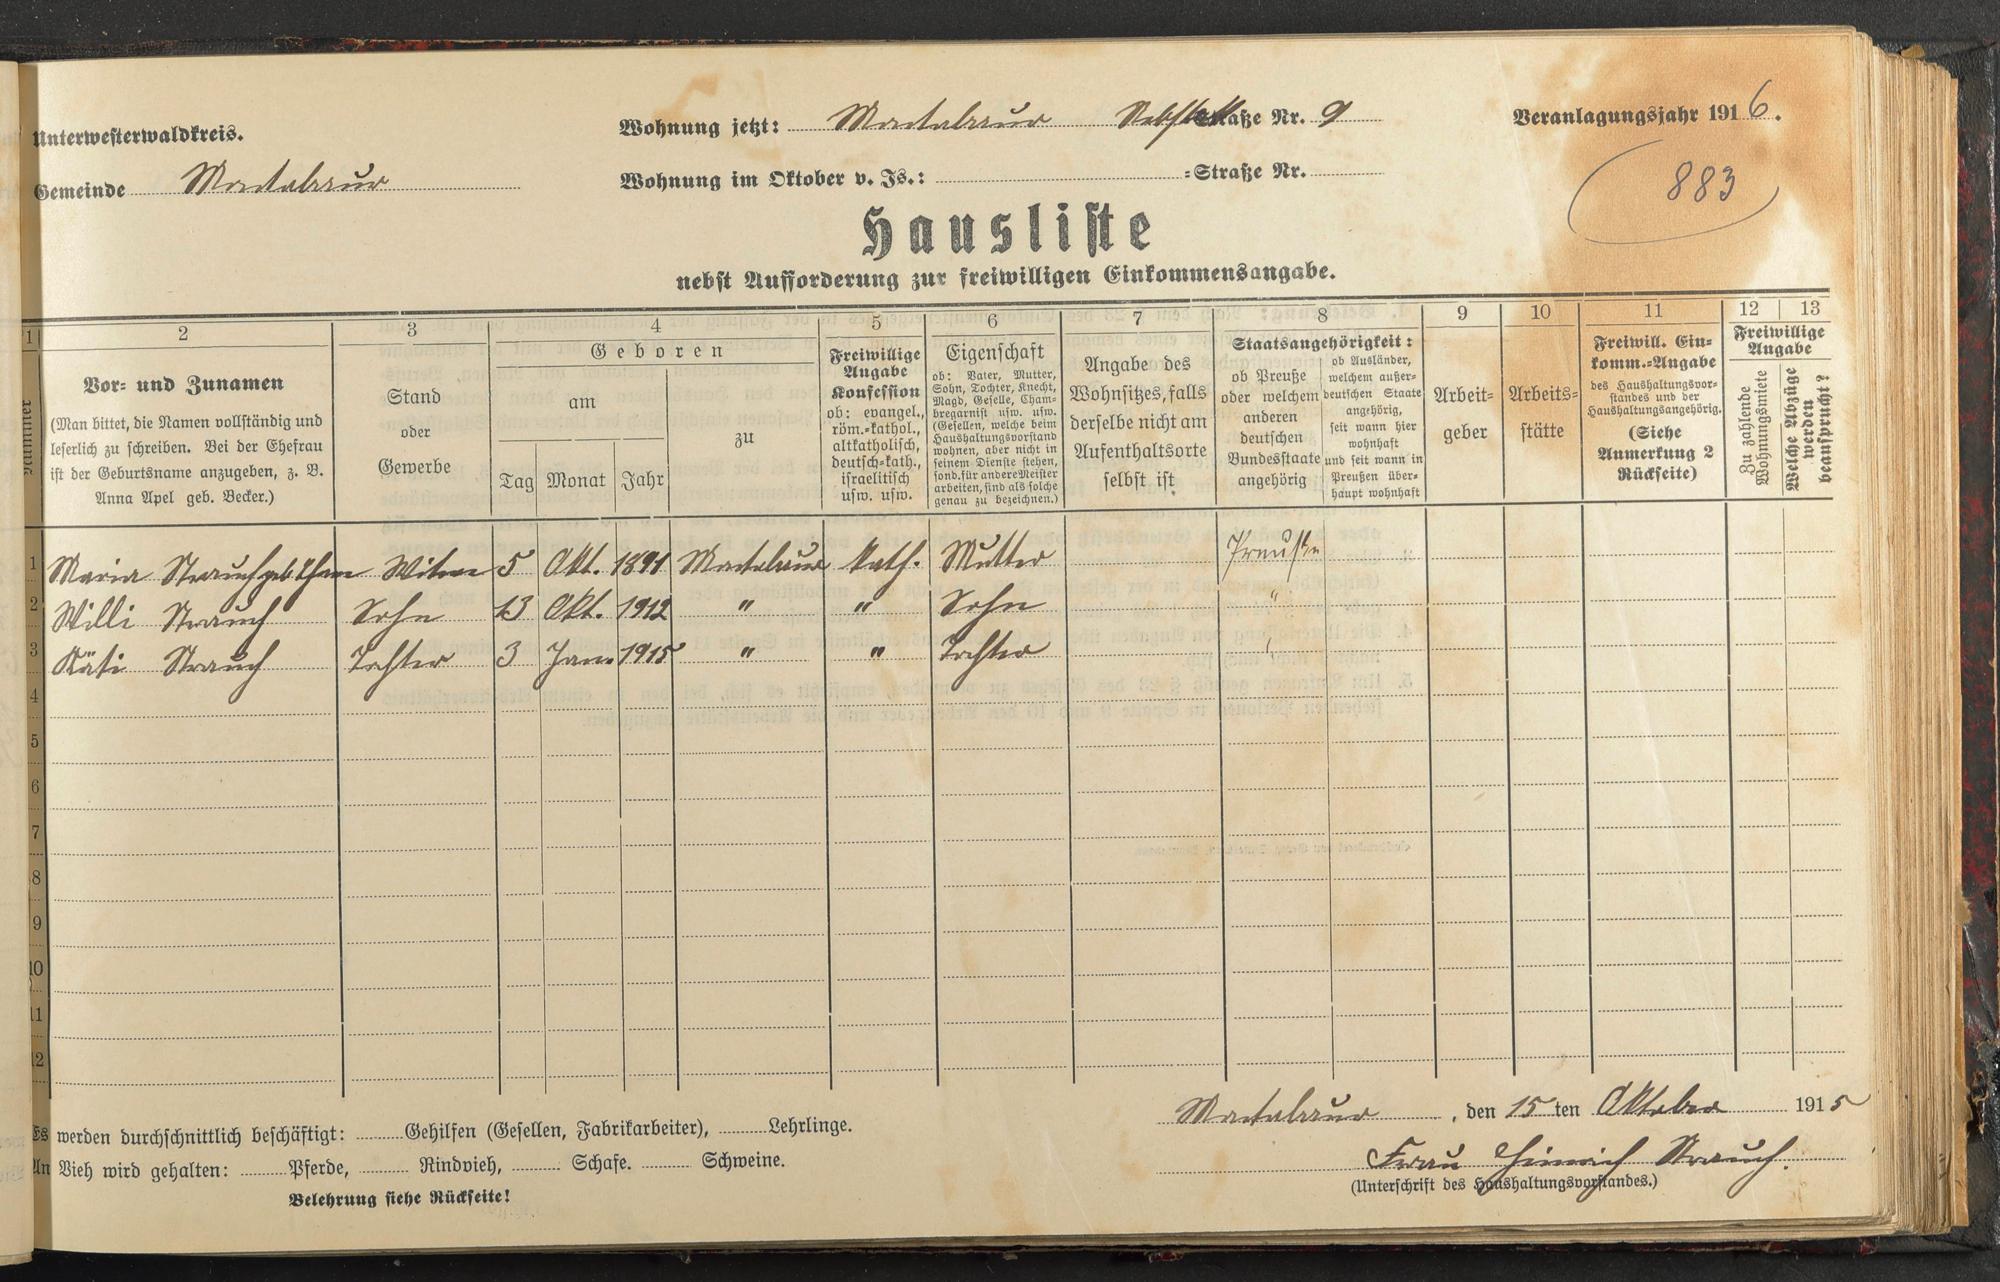 Unterwesterwaldkreis.
Gemeinde Montabaur
Wohnung jetzt: Montabaur Rebstock Straße Nr. 9
Wohnung im Oktober v. Js.: -Straße Nr.
Veranlagungsjahr 1916.
883
Hausliste
nebst Aufforderung zur freiwilligen Einkommensangabe.
1 2 3 4 5 6 7 8 9 10 11 12 13
Nummer
Vor- und Zunamen
(Man bittet, die Namen vollständig und
leserlich zu schreiben. Bei der Ehefrau
ist der Geburtsname anzugeben, z. B.
Anna Apel geb. Becker.)
Stand
oder
Gewerbe
Geboren
am
Tag Monat Jahr
zu
Freiwillige
Angabe
Konfession
ob: evangel.,
röm.-kathol.,
altkatholisch,
deutsch-kath.,
israelitisch
usw. usw.
Eigenschaft
ob: Vater, Mutter,
Sohn, Tochter, Knecht,
Magd, Geselle, Cham-
bregarnist usw. usw.
(Gesellen, welche beim
Haushaltungsvorstand
wohnen, aber nicht in
seinem Dienste stehen,
sond. für andere Meister
arbeiten, sind als solche
genau zu bezeichnen.)
Angabe des
Wohnsitzes, falls
derselbe nicht am
Aufenthaltsorte
selbst ist.
Staatsangehörigkeit:
ob Preuße
oder welchem
anderen
deutschen
Bundesstaate
angehörig
ob Ausländer,
welchem außer-
deutschen Staate
angehörig,
seit wann hier
wohnhaft
und seit wann in
Preußen über-
haupt wohnhaft
Arbeit-
geber
Arbeits-
stätte
Freiwill. Ein-
komm.-Angabe
des Haushaltungsvor-
standes und der
Haushaltungsangehörig.
(Siehe
Anmerkung 2
Rückseite)
Freiwillige
Angabe
Zu zahlende
Wohnungsmiete
Welche Abzüge
werden
beansprucht?
1 Maria Strauch geb. Witwe 5 Okt. 1891 Montabaur kath. Mutter Preußin
2 Willi Strauch Sohn 13 Okt. 1912 " " Sohn "
3 Käti Strauch Tochter 3 Jan. 1915 " " Tochter "
4
5
6
7
8
9
10
11
12
Montabaur, den 15ten Oktober 1915
Es werden durchschnittlich beschäftigt: Gehilfen (Gesellen, Fabrikarbeiter), Lehrlinge.
An Vieh wird gehalten: Pferde, Rindvieh, Schafe. Schweine.
Frau Heinrich Strauch.
(Unterschrift des Haushaltungsvorstandes.)
Belehrung siehe Rückseite!